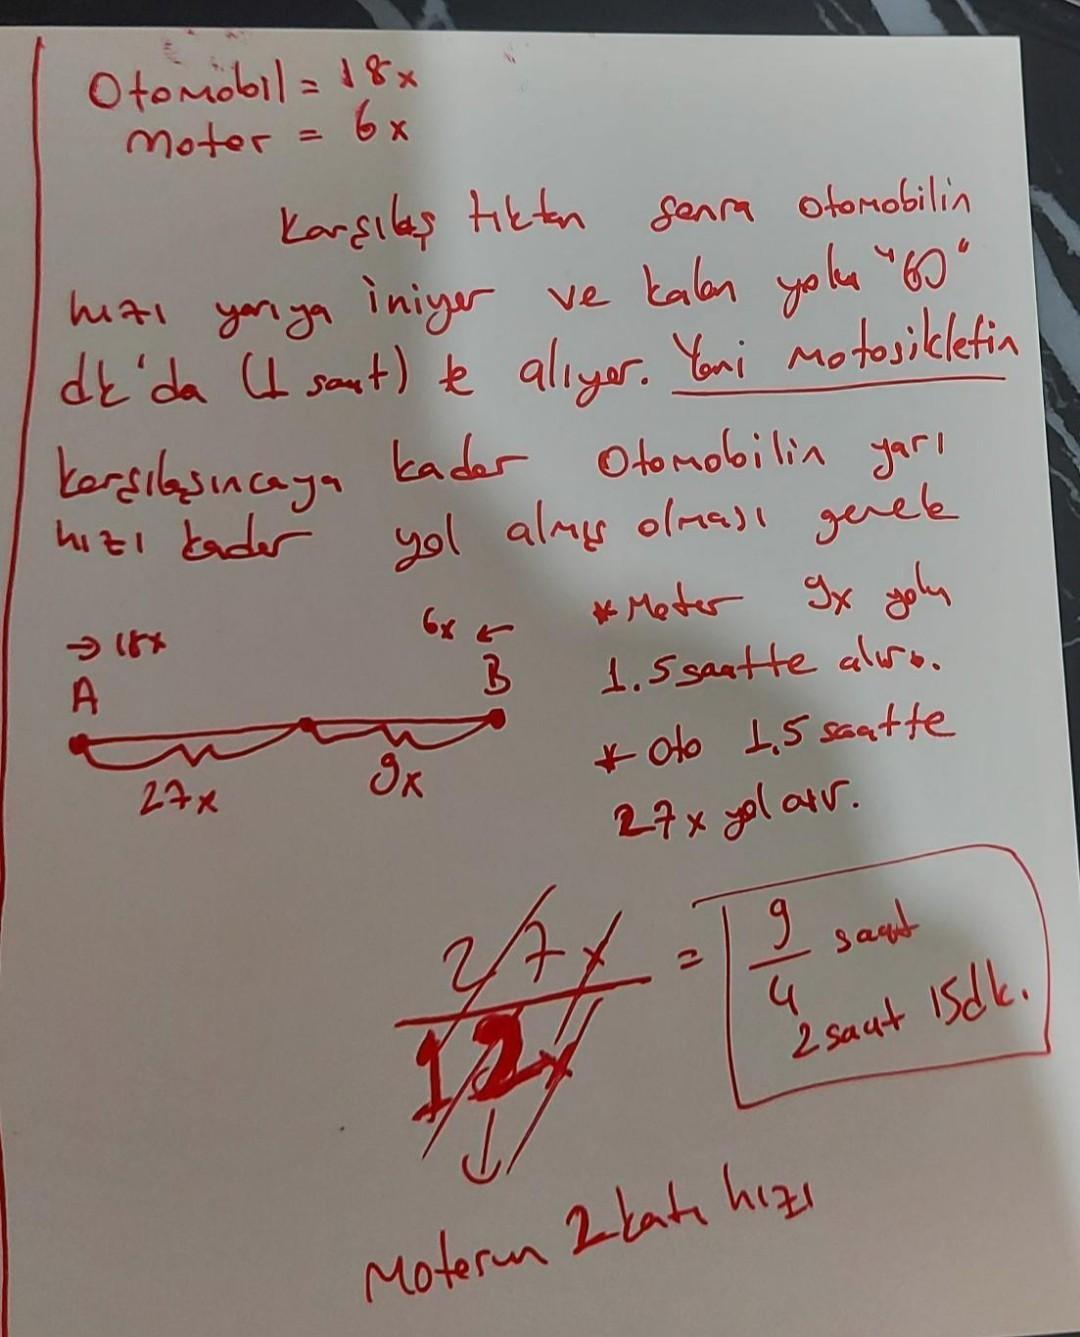 Otomobil = 18x
Moter = 6x
Karşılaş tıktan sonra otomobilin
hızı yarıya iniyor ve kalan yolu "60"
dk'da (1 saat) te alıyor. Yani motosikletin
karşılaşıncaya kadar otomobilin yarı
hızı kadar yol almış olması gerek
→ 18x
6x ←
A
B
27x
9x
* Moter 9x yolu
1.5 saatte alır.
* Oto 1,5 saatte
27x yol alır.
27x
12x
= 9/4 saat
2 saat 15dk.
↓
Moterun 2 katı hızı